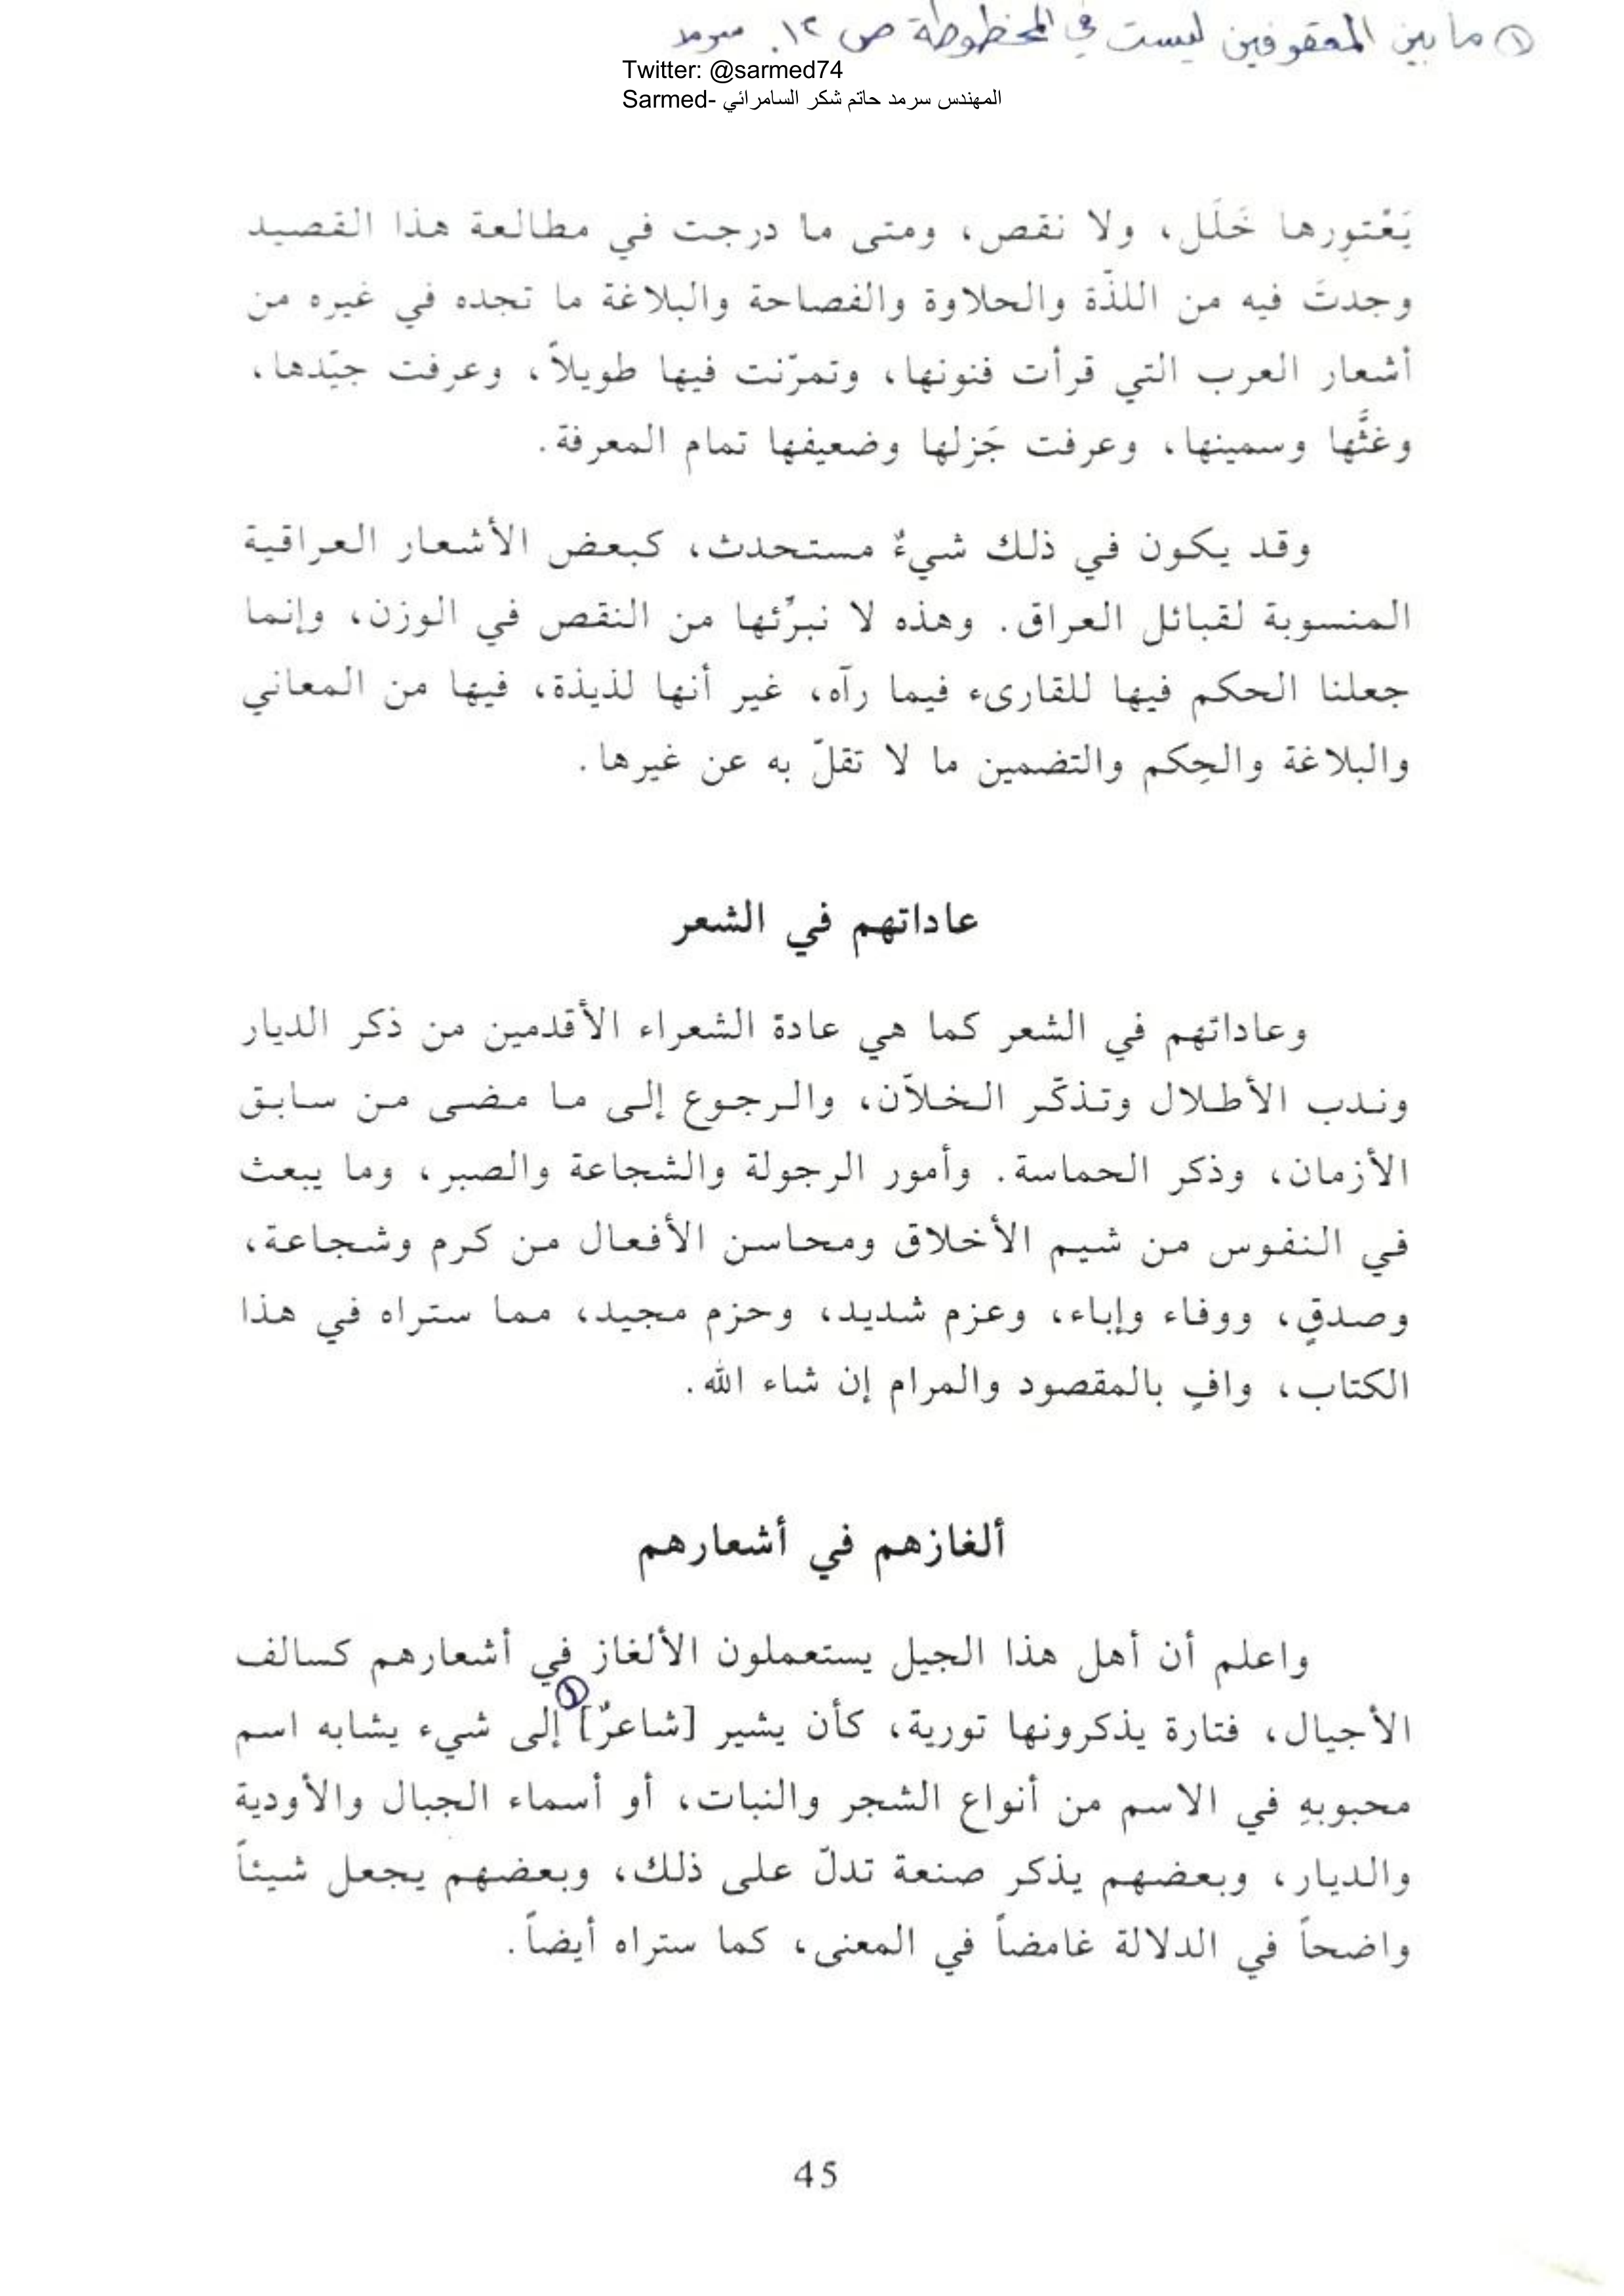 ① ما بين المعقوفين ليست في المخطوطة ص ١٢. سرمد
Twitter: @sarmed74
Sarmed- المهندس سرمد حاتم شكر السامرائي
يَعْتوِرها خَلَل، ولا نقص، ومتى ما درجت في مطالعة هذا القصيد
وجدتَ فيه من اللذّة والحلاوة والفصاحة والبلاغة ما تجده في غيره من
أشعار العرب التي قرأت فنونها، وتمرّنت فيها طويلاً، وعرفت جيّدها،
وغثَّها وسمينها، وعرفت جَزلها وضعيفها تمام المعرفة.
وقد يكون في ذلك شيءٌ مستحدث، كبعض الأشعار العراقية
المنسوبة لقبائل العراق. وهذه لا نبرِّئها من النقص في الوزن، وإنما
جعلنا الحكم فيها للقارىء فيما رآه، غير أنها لذيذة، فيها من المعاني
والبلاغة والحِكم والتضمين ما لا تقلّ به عن غيرها.
عاداتهم في الشعر
وعاداتهم في الشعر كما هي عادة الشعراء الأقدمين من ذكر الديار
وندب الأطلال وتذكّر الخلاّن، والرجوع إلى ما مضى من سابق
الأزمان، وذكر الحماسة. وأمور الرجولة والشجاعة والصبر، وما يبعث
في النفوس من شيم الأخلاق ومحاسن الأفعال من كرم وشجاعة،
وصدقٍ، ووفاء وإباء، وعزم شديد، وحزم مجيد، مما ستراه في هذا
الكتاب، وافٍ بالمقصود والمرام إن شاء الله.
ألغازهم في أشعارهم
واعلم أن أهل هذا الجيل يستعملون الألغاز في أشعارهم كسالف
الأجيال، فتارة يذكرونها تورية، كأن يشير [شاعرٌ]① إلى شيء يشابه اسم
محبوبهِ في الاسم من أنواع الشجر والنبات، أو أسماء الجبال والأودية
والديار، وبعضهم يذكر صنعة تدلّ على ذلك، وبعضهم يجعل شيئاً
واضحاً في الدلالة غامضاً في المعنى، كما ستراه أيضاً.
45